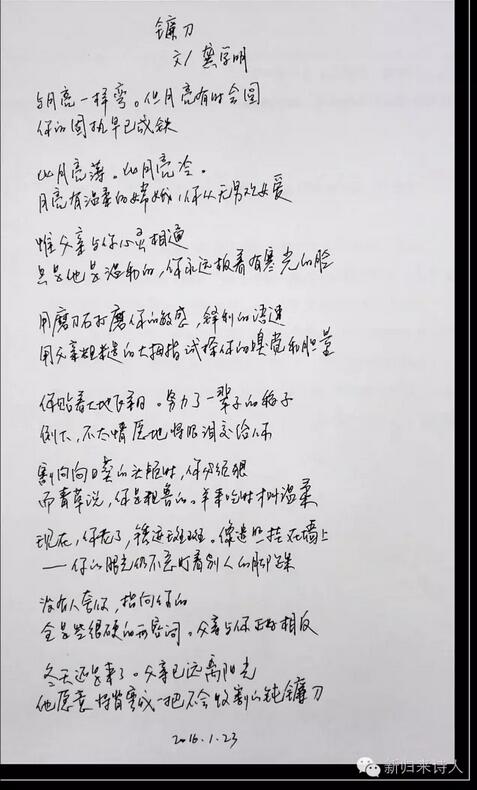 镰刀
文/ 龚学明
与月亮一样弯。但月亮有时会圆
你的固执早已成铁
比月亮薄。比月亮冷。
月亮有温柔的嫦娥,你从无男欢女爱
惟父亲与你心灵相通
只是他是温和的,你永远板着有寒光的脸
用磨刀石打磨你的敏感,锋利的语速
用父亲粗糙的大拇指试探你的嗅觉和胆量
你贴着大地飞翔。努力了一辈子的稻子
倒下,不太情愿地将眼泪交给你
割向向日葵的头颅时,你凶狠
而青草说,你是粗鲁的。羊来吃时才叫温柔
现在,你老了,锈迹斑斑。像遗照挂在墙上
——你的眼光仍不忘盯着别人的脚踝
没有人夸你,指向你的
全是些很硬的形容词。父亲与你正好相反
冬天还是来了。父亲已远离阳光
他愿意将肖像成一把不会收割的钝镰刀
2016.1.23
新归来诗人